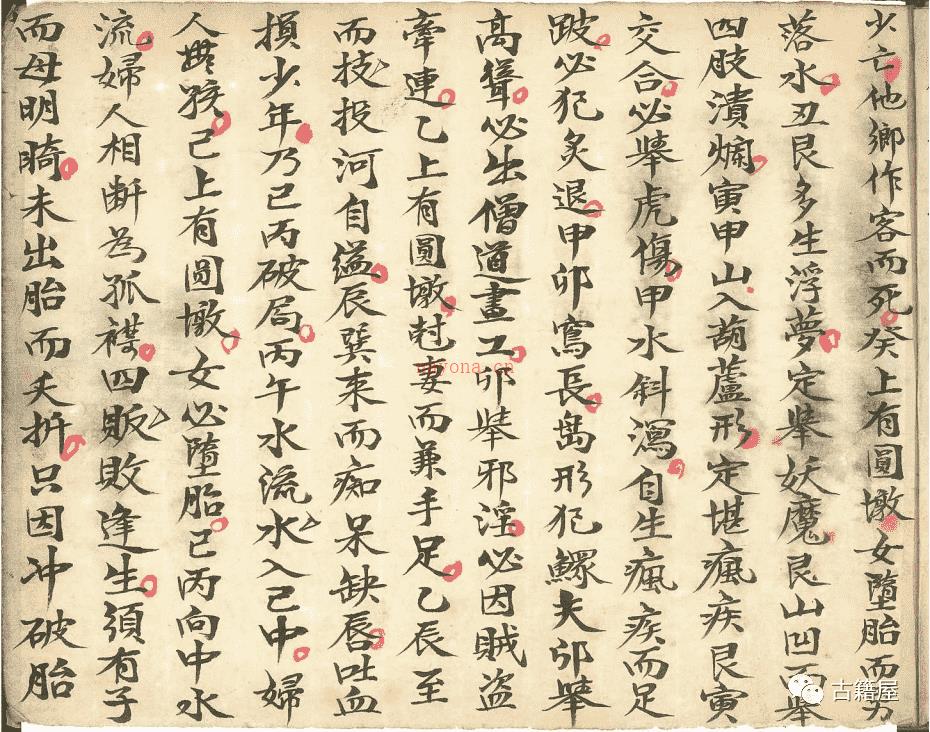 少亡他鄉作客而死癸上有圓墩女墮胎而男
落水丑艮多生浮夢定犖妖魔艮山凹而犖
四肢潰爛寅甲山入葫蘆形定堪瘋疾艮寅
交合必犖虎傷甲水斜瀉自生瘋疾而足
跛必犯炙退甲卯寫長形犯鰥夫卯犖
高聳必出僧道畫工卯犖邪淫必因賊盜
牽連乙上有圓墩尅妻而兼手足乙辰至
而技投河自縊辰巽来而痴呆缺唇吐血
損少年乃巳丙破局丙午水流水入己中婦
人無孩己上有圓墩女必墮胎已丙向中水
流婦人相斷為孤四販敗逢生須有子
而母明未出胎而夭折只因冲破胎
古籍屋